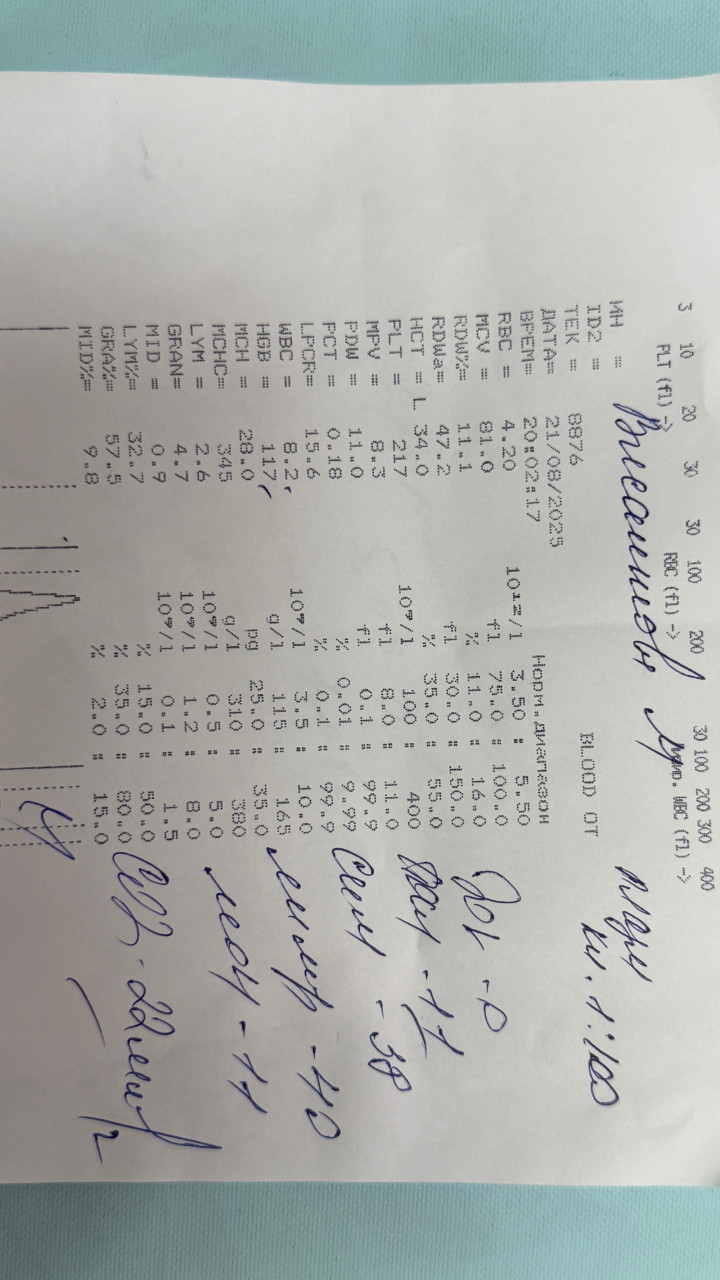 3 10 20 30 30 100 200 30 100 200 300 400
PLT (fl) -> RBC (fl) -> WBC (fl) ->
ИН =
ID2 = BLOOD ОТ
ТЕК = 8876 кн. 1:100
ДАТА= 21/08/2025 Норм.диапазон
ВРЕМ= 20:02:17
RBC = 4.20 10¹²/l 3.50 " 5.50
MCV = 81.0 fl 75.0 " 100.0
RDW%= 11.1 % 11.0 " 16.0
RDWa= 47.2 fl 30.0 " 150.0
HCT = L 34.0 % 35.0 " 55.0
PLT = 217 10⁹/l 100 " 400
MPV = 8.3 fl 8.0 " 11.0
PDW = 11.0 fl 0.1 " 99.9
PCT = 0.18 % 0.01 " 9.99
LPCR= 15.6 % 0.1 " 99.9
WBC = 8.2 10⁹/l 3.5 " 10.0
HGB = 117 g/l 115 " 165
MCH = 28.0 pg 25.0 " 35.0
MCHC= 345 g/l 310 " 380
LYM = 2.6 10⁹/l 0.5 " 5.0
GRAN= 4.7 10⁹/l 1.2 " 8.0
MID = 0.9 10⁹/l 0.1 " 1.5
LYM%= 32.7 % 15.0 " 50.0
GRA%= 57.5 % 35.0 " 80.0
MID%= 9.8 % 2.0 " 15.0
- 0
- 11
- 38
лимф - 40
мон - 11
СОЭ - 22